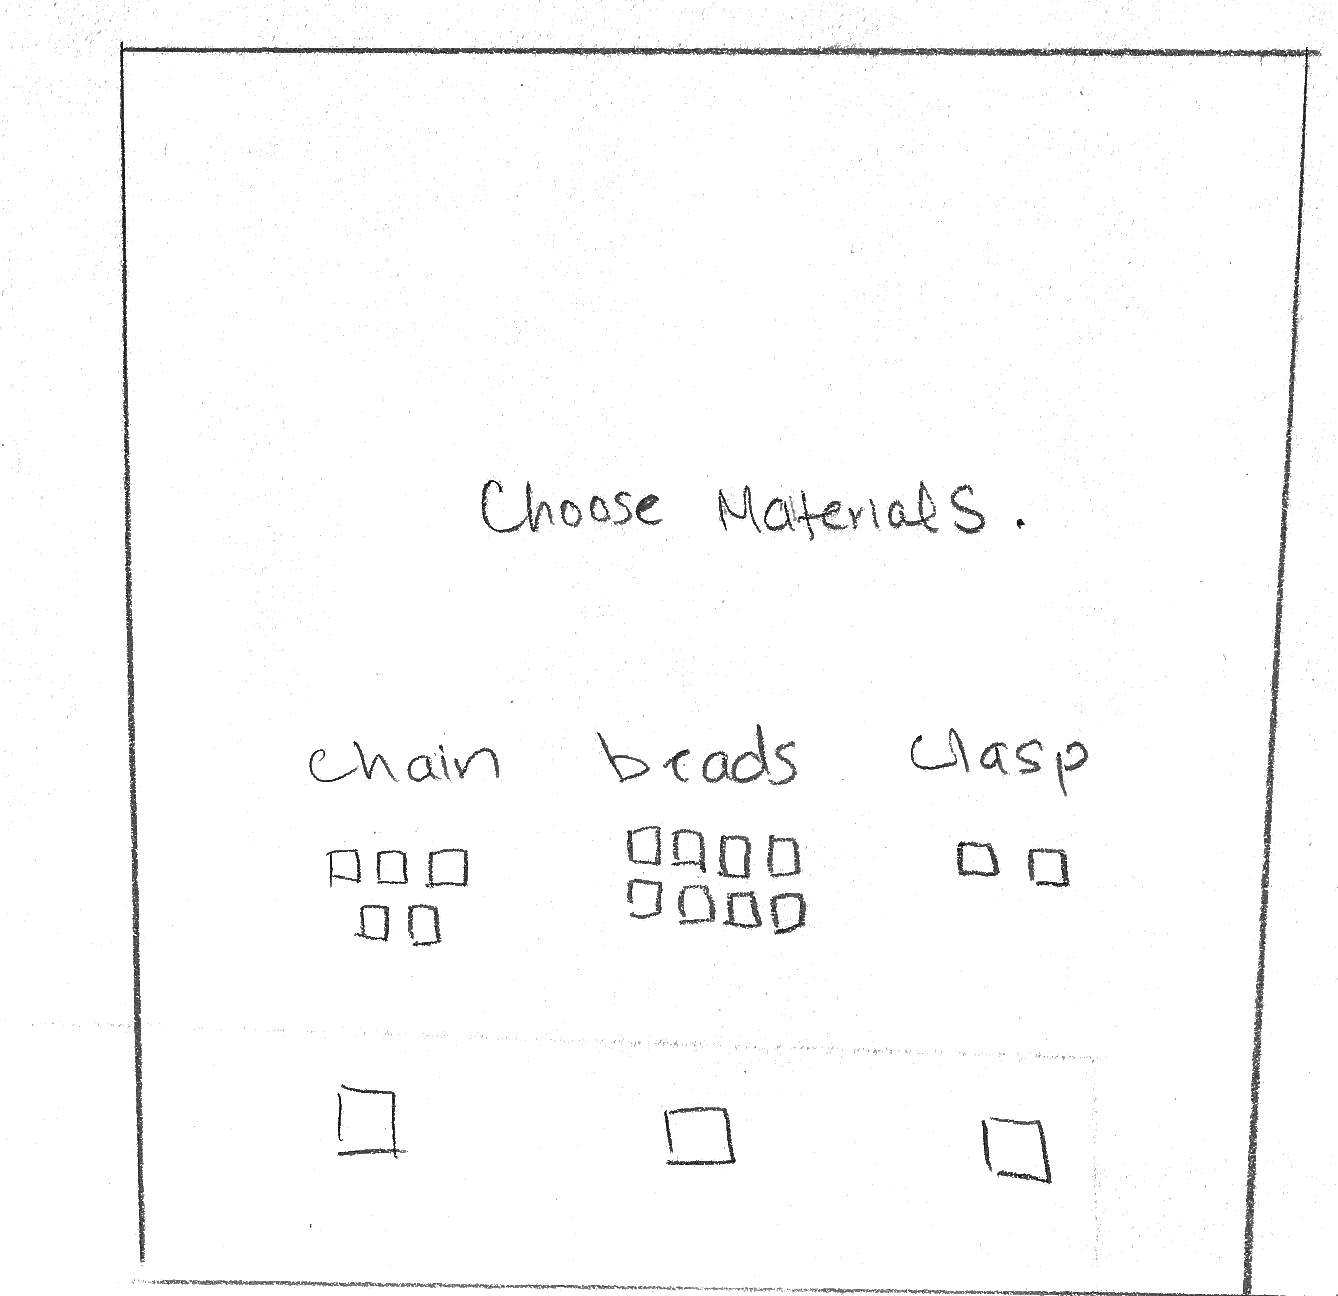 Choose Materials.
chain beads clasp